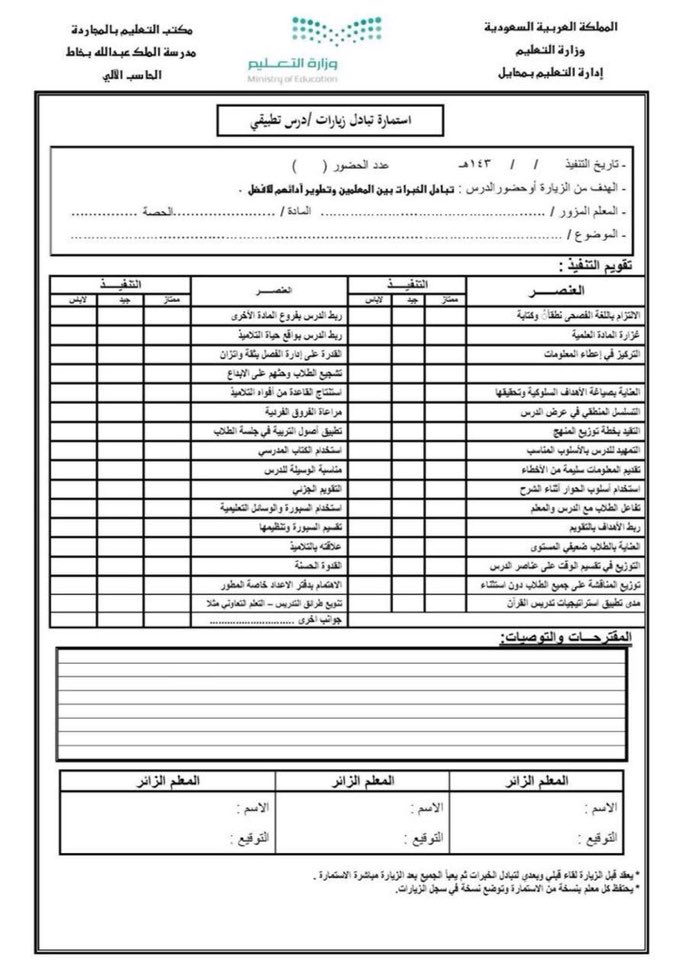 المملكة العربية السعودية
وزارة التعليم
إدارة التعليم بمحايل
وزارة التعـــليم
Ministry of Education
مكتب التعليم بالمجاردة
مدرسة الملك عبدالله بخاط
الحاسب الآلي
استمارة تبادل زيارات /درس تطبيقي
- تاريخ التنفيذ / / ١٤٣هـ عدد الحضور ( )
- الهدف من الزيارة أوحضور الدرس : تبادل الخبرات بين المعلمين وتطوير أدائهم للافضل .
- المعلم المزور / ............................................ المادة / .......................الحصة ...............
- الموضوع / ....................................................................................
تقويم التنفيذ :
العنصـــر التنفيـــذ العنصـــر التنفيـــذ
ممتاز جيد لاباس ممتاز جيد لاباس
الالتزام باللغة الفصحى نطقاً وكتابة ربط الدرس بفروع المادة الأخرى
غزارة المادة العلمية ربط الدرس بواقع حياة التلاميذ
التركيز في إعطاء المعلومات القدرة على إدارة الفصل بثقة واتزان
تشجيع الطلاب وحثهم على الابداع
العناية بصياغة الأهداف السلوكية وتحقيقها استنتاج القاعدة من أفواه التلاميذ
التسلسل المنطقي في عرض الدرس مراعاة الفروق الفردية
التقيد بخطة توزيع المنهج تطبيق أصول التربية في جلسة الطلاب
التمهيد للدرس بالأسلوب المناسب استخدام الكتاب المدرسي
تقديم المعلومات سليمة من الأخطاء مناسبة الوسيلة للدرس
استخدام أسلوب الحوار أثناء الشرح التقويم الجزئي
تفاعل الطلاب مع الدرس والمعلم استخدام السبورة والوسائل التعليمية
ربط الأهداف بالتقويم تقسيم السبورة وتنظيمها
العناية بالطلاب ضعيفي المستوى علاقته بالتلاميذ
التوزيع في تقسيم الوقت على عناصر الدرس القدوة الحسنة
توزيع المناقشة على جميع الطلاب دون استثناء الاهتمام بدفتر الاعداد خاصة المطور
مدى تطبيق استراتيجيات تدريس القرآن تنويع طرائق التدريس – التعلم التعاوني مثلا
جوانب اخرى ............................
المقترحــات والتوصيات:
المعلم الزائر المعلم الزائر المعلم الزائر
الاسم : الاسم : الاسم :
التوقيع : التوقيع : التوقيع :
* يعقد قبل الزيارة لقاء قبلي وبعدي لتبادل الخبرات ثم يعبأ الجميع بعد الزيارة مباشرة الاستمارة .
* يحتفظ كل معلم بنسخة من الاستمارة وتوضع نسخة في سجل الزيارات.